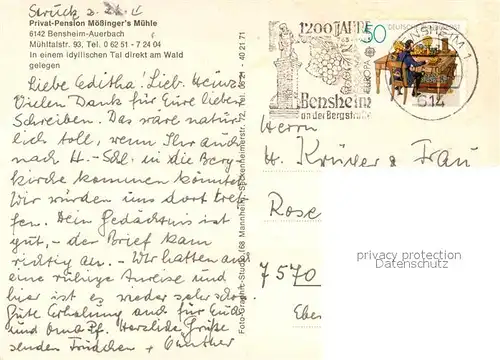 Struck z. Zt.
Privat-Pension Mößinger's Mühle
6142 Bensheim-Auerbach
Mühltalstr. 93, Tel. 0 62 51 - 7 24 04
In einem idyllischen Tal direkt am Wald
gelegen
Liebe Editha! Lieb. Heinz
Vielen Dank für Eure lieben
Schreiben. Das wäre natür
lich toll, wenn Ihr auch
nach H.-Schl. in die Berg-
kirche kommen könntet
Wir würden uns dort tref-
fen. Dein Gedächtnis ist
gut, - der Brief kam
richtig an. - Wir hatten
eine ruhige Anreise und
hier ist es wieder sehr schön.
Gute Erholung auch für Euch
und Oma Pf. Herzliche Grüße
senden Friedchen + Günther
Foto-Graphik-Studio, 68 Mannheim, Seckenheimerstr. 72, Tel. 06 21 - 40 21 71
1200 JAHRE
Bensheim
an der Bergstraße
50
DEUTSCHE BUNDESPOST
EUROPA
BENSHEIM 1
614
Herrn
H. Krüder + Frau
Rose
7570
Eber
privacy protection
Datenschutz